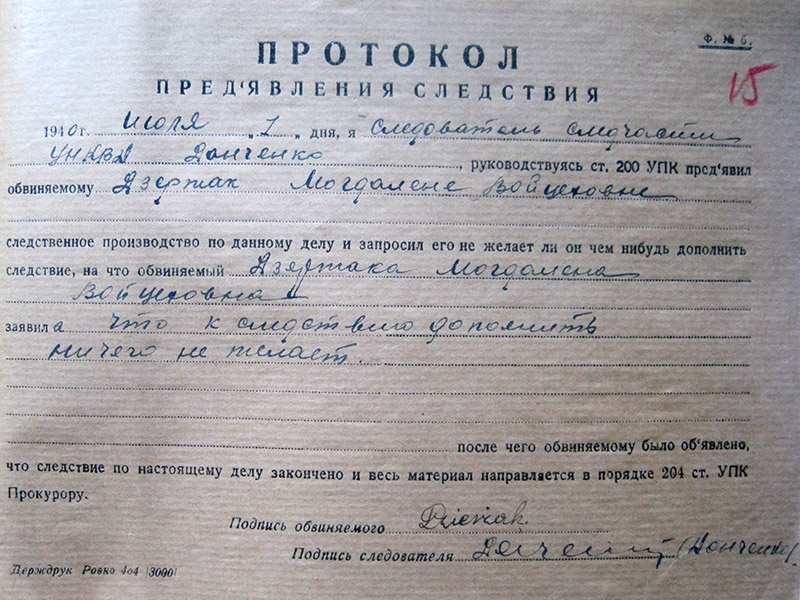 Ф. № 6.
ПРОТОКОЛ
15
ПРЕД'ЯВЛЕНИЯ СЛЕДСТВИЯ
1940г. июля „ 1 „ дня, я следователь следчасти
УНКВД Донченко, руководствуясь ст. 200 УПК пред'явил
обвиняемому Дзержак Могдалене Войцеховне
следственное производство по данному делу и запросил его не желает ли он чем нибудь дополнить
следствие, на что обвиняемый Дзержака Могдалена
Войцеховна
заявила что к следствию дополнить
ничего не желает.
после чего обвиняемому было об'явлено,
что следствие по настоящему делу закончено и весь материал направляется в порядке 204 ст. УПК
Прокурору.
Подпись обвиняемого
Подпись следователя (Донченко).
Держдрук Ровно 404 (3000)